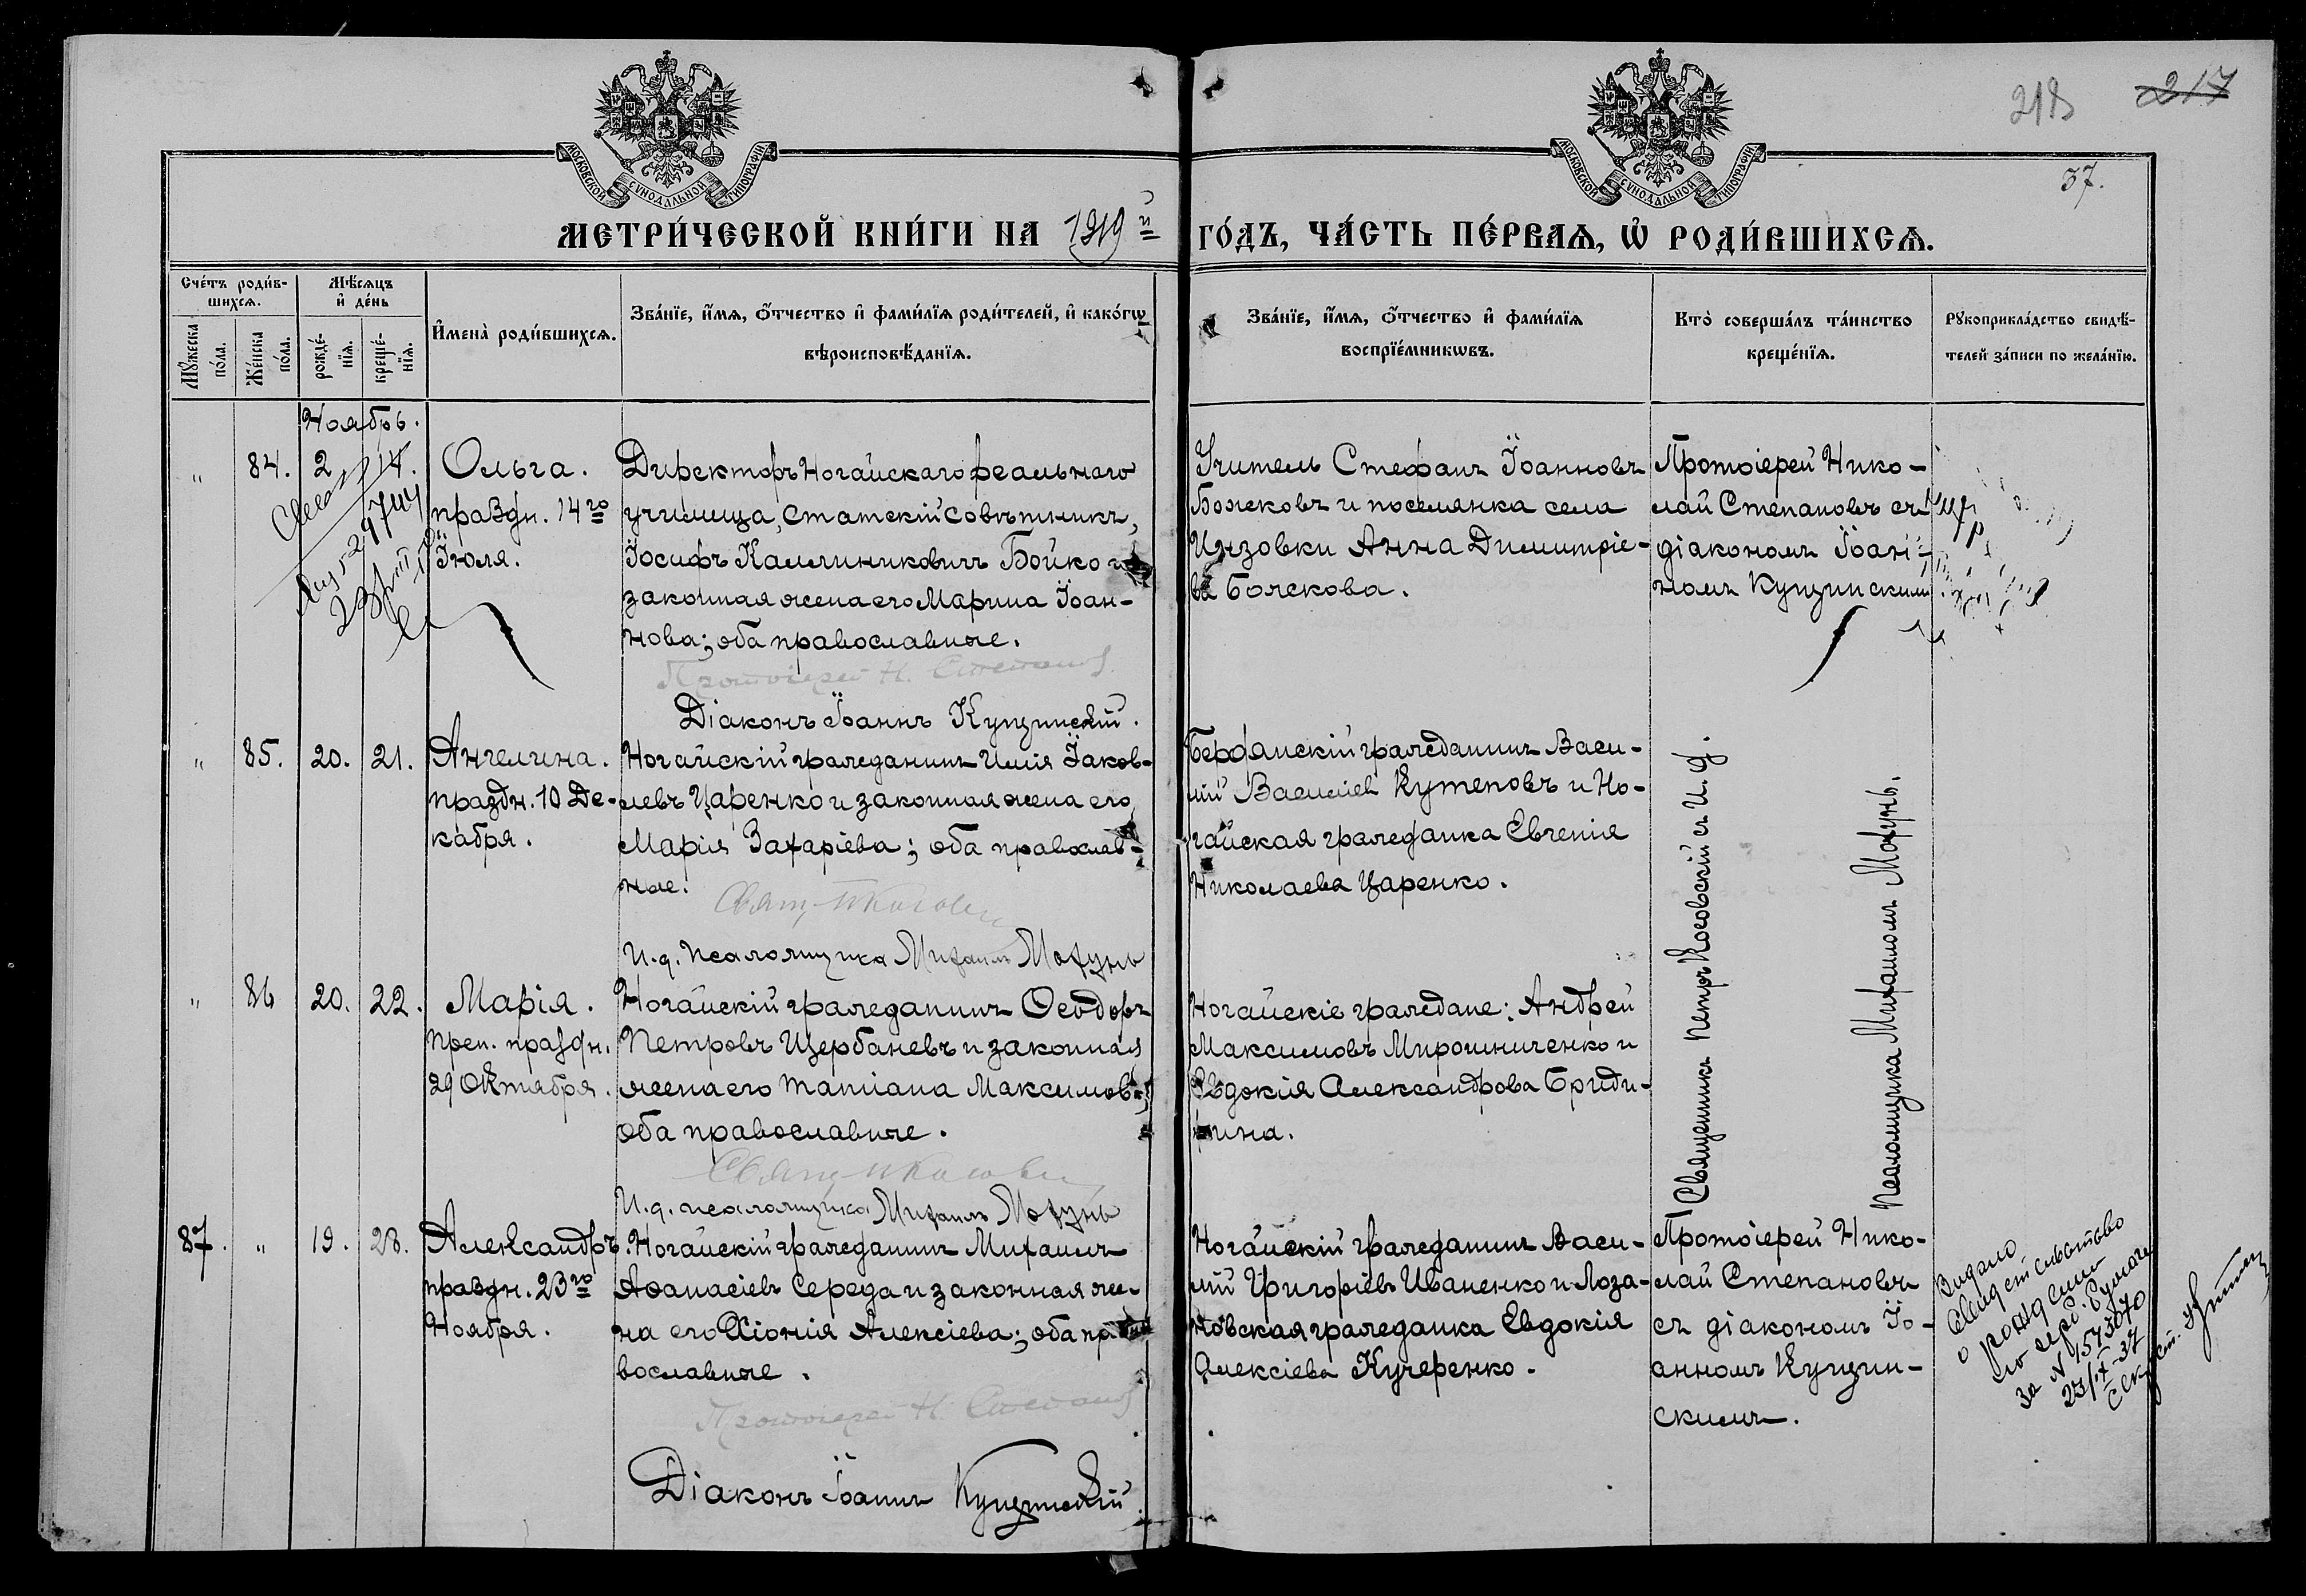 МОСКОВСКОЙ СУНОДАЛЬНОЙ ТИПОГРАФІИ
МОСКОВСКОЙ СУНОДАЛЬНОЙ ТИПОГРАФІИ
218 217
37.
МЕТРИ́ЧЕСКОЙ КНИ́ГИ НА 1919й ГО́ДЪ, ЧА́СТЬ ПЕ́РВАѦ, Ѡ҆ РОДИ́ВШИХСѦ.
Сче́тъ роди́в-
шихсѧ.
Мꙋ́жеска по́ла.
Же́нска по́ла.
Мѣ́сѧцъ
и҆ де́нь
рожде́-
нїѧ.
креще́-
нїѧ.
И҆мена̀ роди́вшихсѧ.
Зва́нїе, и҆́мѧ, ѻ҆́тчество и҆ фами́лїѧ роди́телей, и҆ како́гѡ
вѣроисповѣ́данїѧ.
Зва́нїе, и҆́мѧ, ѻ҆́тчество и҆ фами́лїѧ
воспрїе́мникѡвъ.
Кто̀ соверша́лъ та́инство
креще́нїѧ.
Рꙋкоприкла́дство свидѣ́-
телей за́писи по жела́нїю.
Ноябрь.
" 84. 2 14. Ольга.
праздн. 14го
Іюля.
Директоръ Ногайскаго реальнаго
училища, Статскій Совѣтникъ,
Іосифъ Каллиниковичъ Бойко и
законная жена его Марина Іоан-
нова; оба православные.
Протоіерей Н. Степановъ
Діаконъ Іоаннъ Кущинскій.
Учитель Стефанъ Іоанновъ
Божковъ и поселянка села
Инзовки Анна Димитріе-
ва Божкова.
Протоіерей Нико-
лай Степановъ съ
діакономъ Іоан-
номъ Кущинскимъ
" 85. 20. 21. Ангелина.
праздн. 10 Де-
кабря.
Ногайскій гражданинъ Илія Іаков-
левъ Царенко и законная жена его
Марія Захаріева; оба православ-
ные.
И.д. псаломщика Михаилъ Мохунь
Бердянскій гражданинъ Васи-
лій Василіев Кутеповъ и Но-
гайская гражданка Евгенія
Николаева Царенко.
Священникъ Петръ Косовскій съ И. д.
Псаломщика Михаиломъ Мохунь.
" 86 20. 22. Марія.
преп. праздн.
29 Октября.
Ногайскій гражданинъ Ѳеодоръ
Петровъ Щербаневъ и законная
жена его Татіана Максимов.;
оба православные.
И.д. псаломщика Михаилъ Мохунь
Ногайскіе граждане: Андрей
Максимовъ Мирошниченко и
Евдокія Александрова Бриди-
хина.
87. " 19. 28. Александръ.
праздн. 23го
Ноября.
Ногайскій гражданинъ Михаилъ
Аѳанасіевъ Середа и законная же-
на его Хіонія Алексіева; оба пра-
вославные.
Протоіерей Н. Степановъ
Діаконъ Іоаннъ Кущинскій
Ногайскій гражданинъ Васи-
лій Григоріевъ Иваненко и Лоза-
новская гражданка Евдокія
Алексіева Кучеренко.
Протоіерей Нико-
лай Степановъ
съ діакономъ Іо-
анномъ Кущин-
скимъ.
Видано
свидетельство
за N 1573070